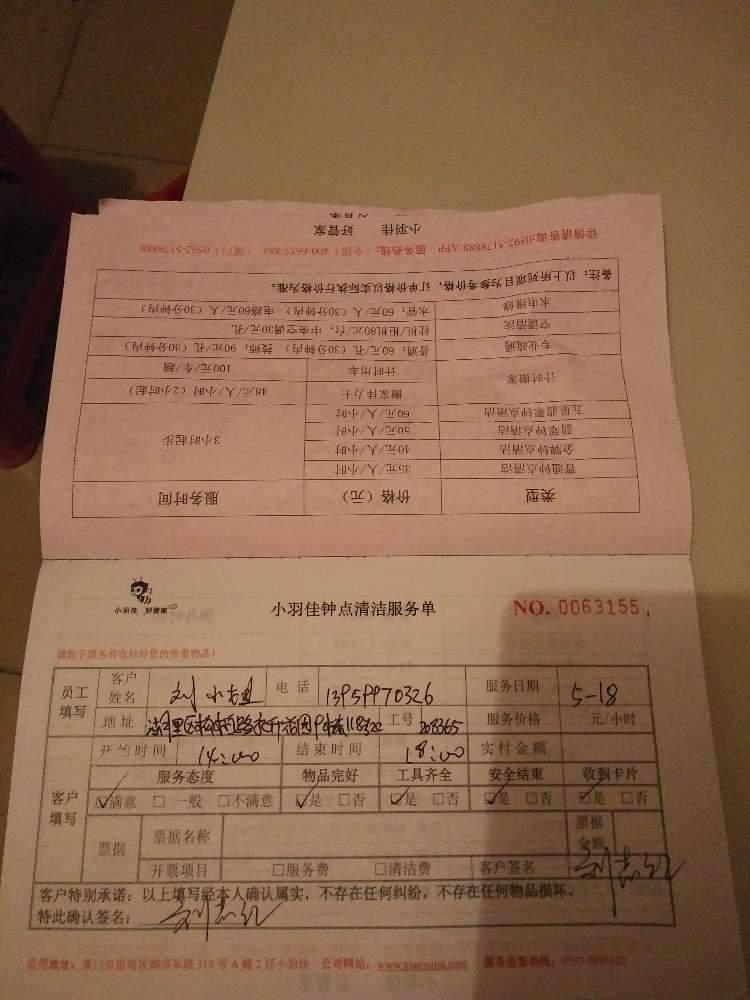 类型 价格（元） 服务时间
普通钟点清洁 35元/人/小时 3小时起步
金牌钟点清洁 40元/人/小时
翡翠钟点清洁 50元/人/小时
五星翡翠钟点清洁 60元/人/小时
计时搬家 搬家佳力士 48元/人/小时（2小时起）
计时用车 100元/车/趟
专业疏通 普通：60元/孔（30分钟内） 技师：90元/孔（30分钟内）
空调清洗 挂机/柜机80元/台，中央空调30元/孔
水电维修 水管：60元/人（30分钟内） 电路60元/人（30分钟内）
备注：以上所列项目为参考价格，订单价格以实际执行价格为准。
详情请咨询:0592-5178888 APP 服务热线：（全国）400-6655-888 （厦门）0592-5178888
小羽佳 好管家
小羽佳 好管家
小羽佳钟点清洁服务单
NO. 0063155
请您于服务前收捡好您的贵重物品！
员工填写 客户姓名 刘 电话 13959970326 服务日期 5-18
地址 湖里区 工号 208365 服务价格 元/小时
开始时间 14:00 结束时间 18:00 实付金额
客户填写 服务态度 物品完好 工具齐全 安全结束 收到卡片
满意 一般 不满意 是 否 是 否 是 否 是 否
票据 票据名称 票据金额
开票项目 服务费 清洁费 客户签名 刘志红
客户特别承诺：以上填写经本人确认属实，不存在任何纠纷，不存在任何物品损坏。
特此确认签名： 刘志红
公司地址：厦门市思明区湖滨东路319号A幢2层小羽佳 公司网站：www.xiaoyujia.com 服务监督热线：